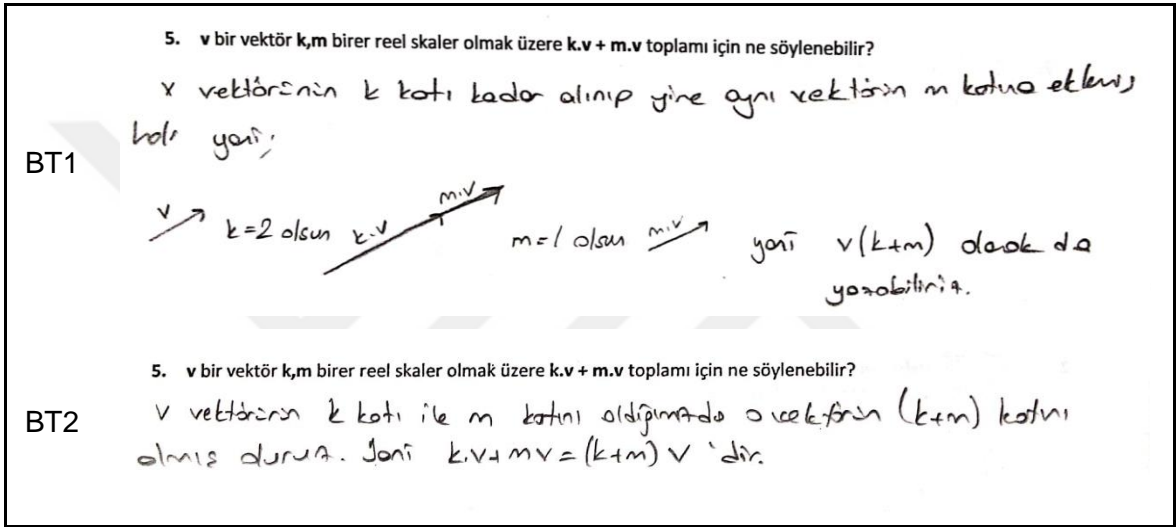 5. v bir vektör k,m birer reel skaler olmak üzere k.v + m.v toplamı için ne söylenebilir?
v vektörünün k katı kadar alınıp yine aynı vektörün m katına eklenmiş
hali yani;
BT1
v k=2 olsun k.v m.v m=1 olsun m.v yani v(k+m) olarak da
yazabiliriz.
5. v bir vektör k,m birer reel skaler olmak üzere k.v + m.v toplamı için ne söylenebilir?
BT2
v vektörünün k katı ile m katını aldığımızda o vektörün (k+m) katını
almış oluruz. Yani k.v+mv=(k+m) v 'dir.